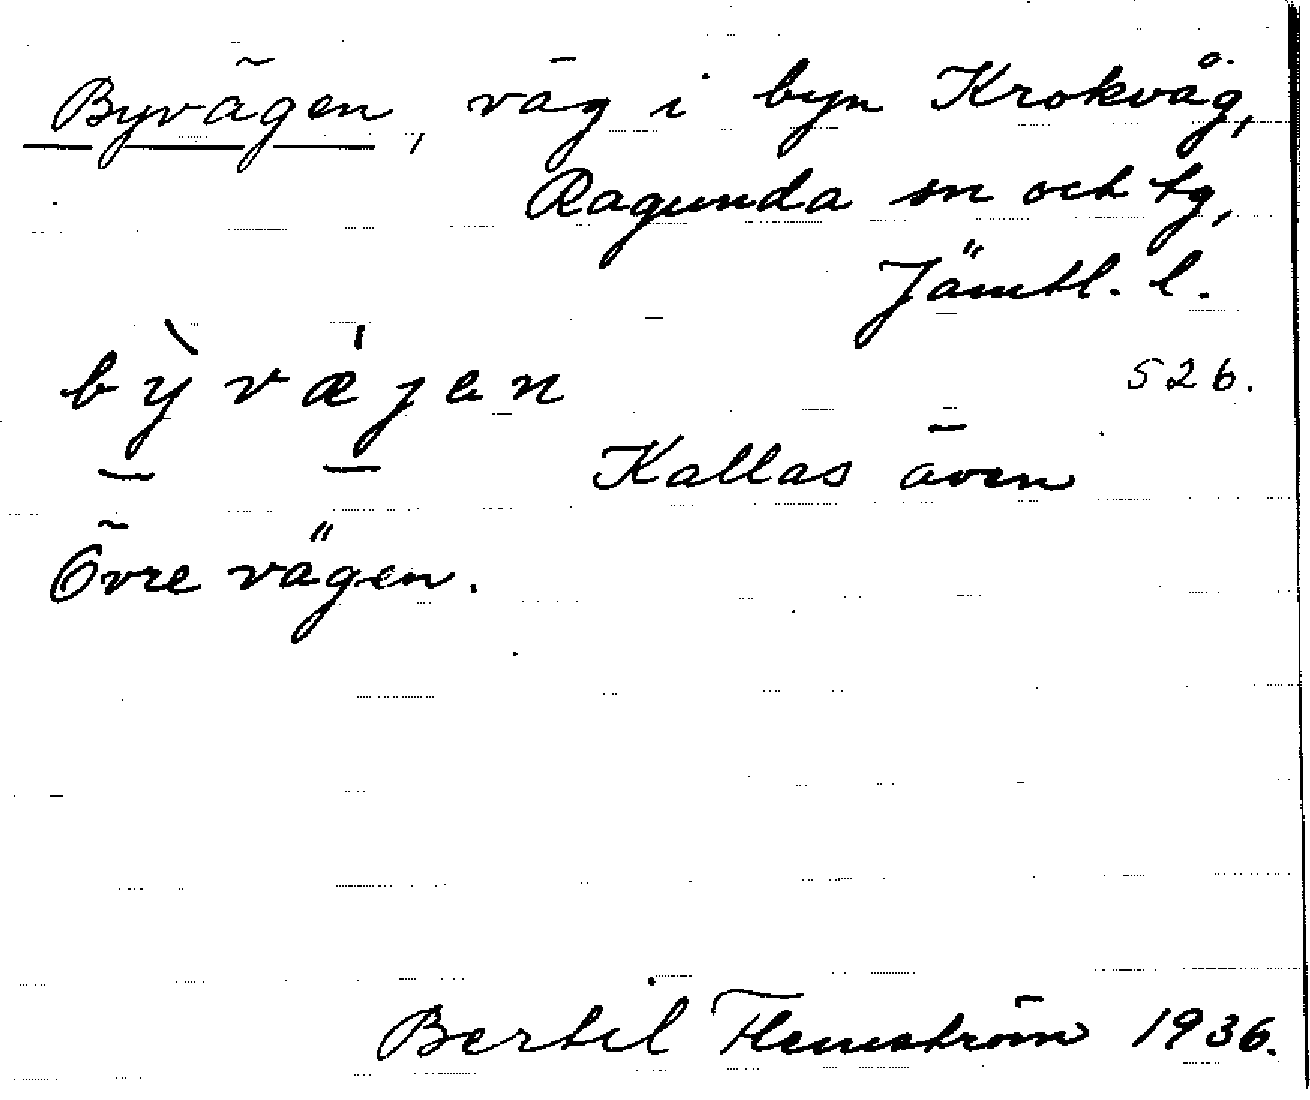 Byvägen, väg i byn Krokvåg,
Ragunda sn och tg,
Jämtl. l.
bỳvæ̍jen 526.
Kallas även
Övre vägen.
Bertil Flemström 1936.